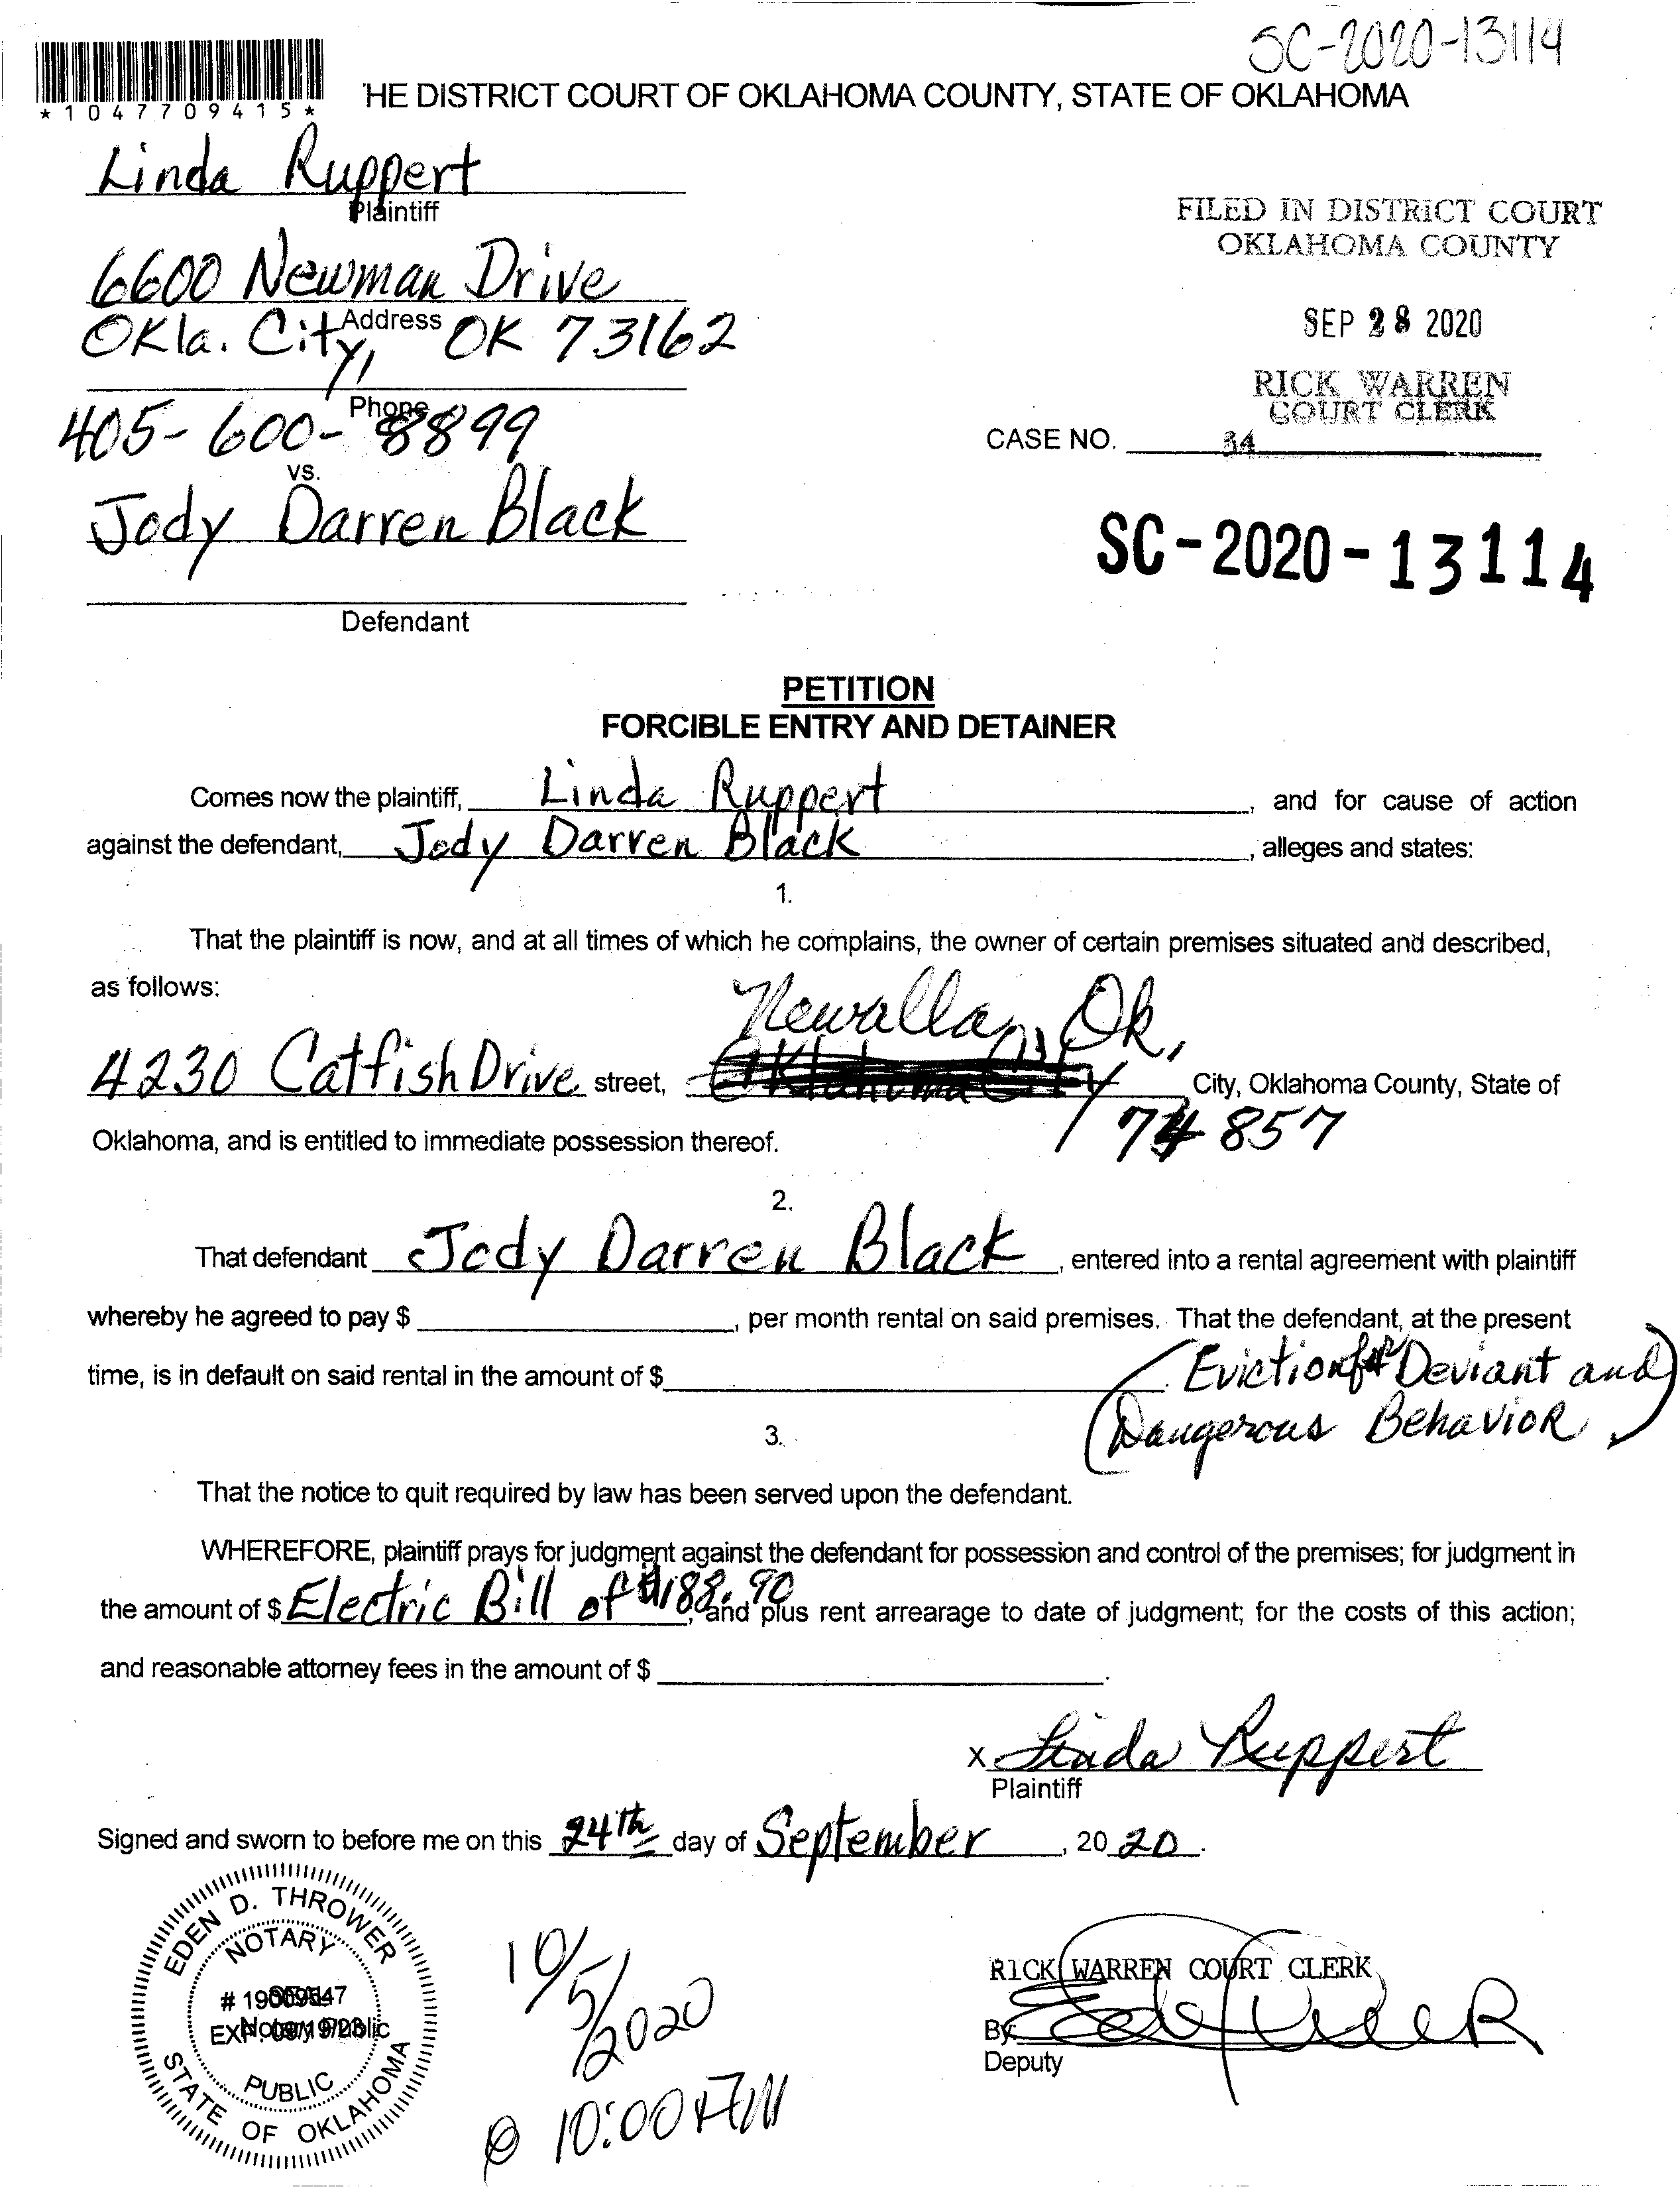 SC-2020-13114
*1047709415*
'HE DISTRICT COURT OF OKLAHOMA COUNTY, STATE OF OKLAHOMA
Linda Ruppert
Plaintiff
6600 Newman Drive
Address
Okla. City, OK 73162
Phone
405-600-8899
vs.
Jody Darren Black
Defendant
FILED IN DISTRICT COURT
OKLAHOMA COUNTY
SEP 28 2020
RICK WARREN
COURT CLERK
CASE NO. 34
SC-2020-13114
PETITION
FORCIBLE ENTRY AND DETAINER
Comes now the plaintiff, Linda Ruppert, and for cause of action
against the defendant, Jody Darren Black, alleges and states:
1.
That the plaintiff is now, and at all times of which he complains, the owner of certain premises situated and described,
as follows:
Newalla, Ok,
4230 Catfish Drive street, Oklahoma City City, Oklahoma County, State of
74857
Oklahoma, and is entitled to immediate possession thereof.
2.
That defendant Jody Darren Black, entered into a rental agreement with plaintiff
whereby he agreed to pay $ , per month rental on said premises. That the defendant, at the present
time, is in default on said rental in the amount of $ . (Eviction for Deviant and
Dangerous Behavior)
3.
That the notice to quit required by law has been served upon the defendant.
WHEREFORE, plaintiff prays for judgment against the defendant for possession and control of the premises; for judgment in
the amount of $ Electric Bill of $188.90, and plus rent arrearage to date of judgment; for the costs of this action;
and reasonable attorney fees in the amount of $ .
x Linda Ruppert
Plaintiff
Signed and sworn to before me on this 24th day of September, 2020.
EDEN D. THROWER
NOTARY
# 19009547
EXP. 09/19/23
Notary Public
PUBLIC
STATE OF OKLAHOMA
10/5/2020
@ 10:00 AM
RICK WARREN COURT CLERK
By
Deputy